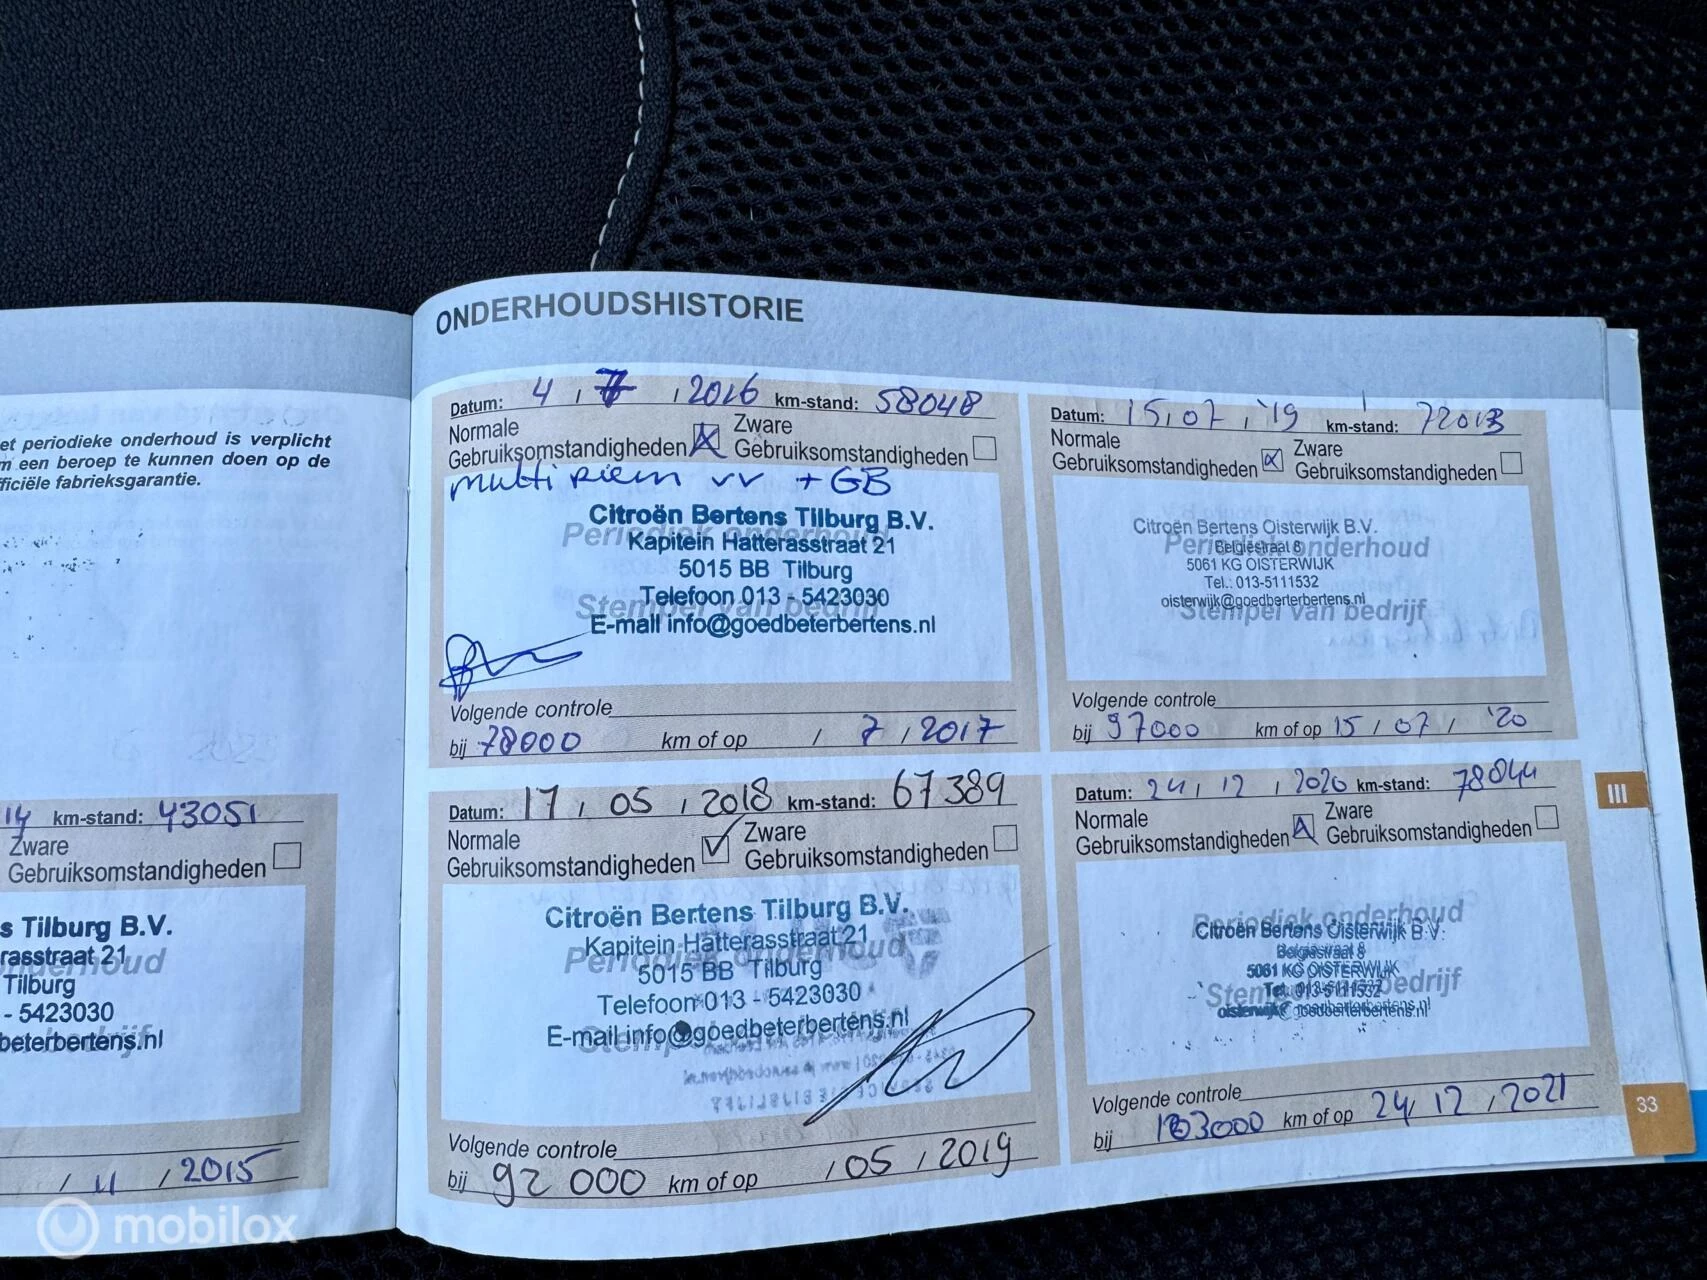 et periodieke onderhoud is verplicht
m een beroep te kunnen doen op de
fficiële fabrieksgarantie.
14 km-stand: 43051
Zware
Gebruiksomstandigheden
s Tilburg B.V.
rasstraat 21
Tilburg
- 5423030
beterbertens.nl
/ 11 / 2015
ONDERHOUDSHISTORIE
Datum: 4 / 7 / 2016 km-stand: 58048
Normale Gebruiksomstandigheden Zware Gebruiksomstandigheden
multi riem vv + GB
Periodiek onderhoud
Stempel van bedrijf
Citroën Bertens Tilburg B.V.
Kapitein Hatterasstraat 21
5015 BB Tilburg
Telefoon 013 - 5423030
E-mail info@goedbeterbertens.nl
Volgende controle
bij 78000 km of op / 7 / 2017
Datum: 17 / 05 / 2018 km-stand: 67389
Normale Gebruiksomstandigheden Zware Gebruiksomstandigheden
Periodiek onderhoud
Citroën Bertens Tilburg B.V.
Kapitein Hatterasstraat 21
5015 BB Tilburg
Telefoon 013 - 5423030
E-mail info@goedbeterbertens.nl
Volgende controle
bij 92 000 km of op / 05 / 2019
Datum: 15 / 07 / '19 km-stand: 72013
Normale Gebruiksomstandigheden Zware Gebruiksomstandigheden
Periodiek onderhoud
Stempel van bedrijf
Citroën Bertens Oisterwijk B.V.
Belgiestraat 8
5061 KG OISTERWIJK
Tel.: 013-5111532
oisterwijk@goedberterbertens.nl
Volgende controle
bij 97000 km of op 15 / 07 / '20
Datum: 24 / 12 / 2020 km-stand: 78844
Normale Gebruiksomstandigheden Zware Gebruiksomstandigheden
Periodiek onderhoud
Stempel van bedrijf
Citroën Bertens Oisterwijk B.V.
Belgiestraat 8
5061 KG OISTERWIJK
Tel. 013-5111532
Volgende controle
bij 103000 km of op 24 / 12 / 2021
III
33
mobilox